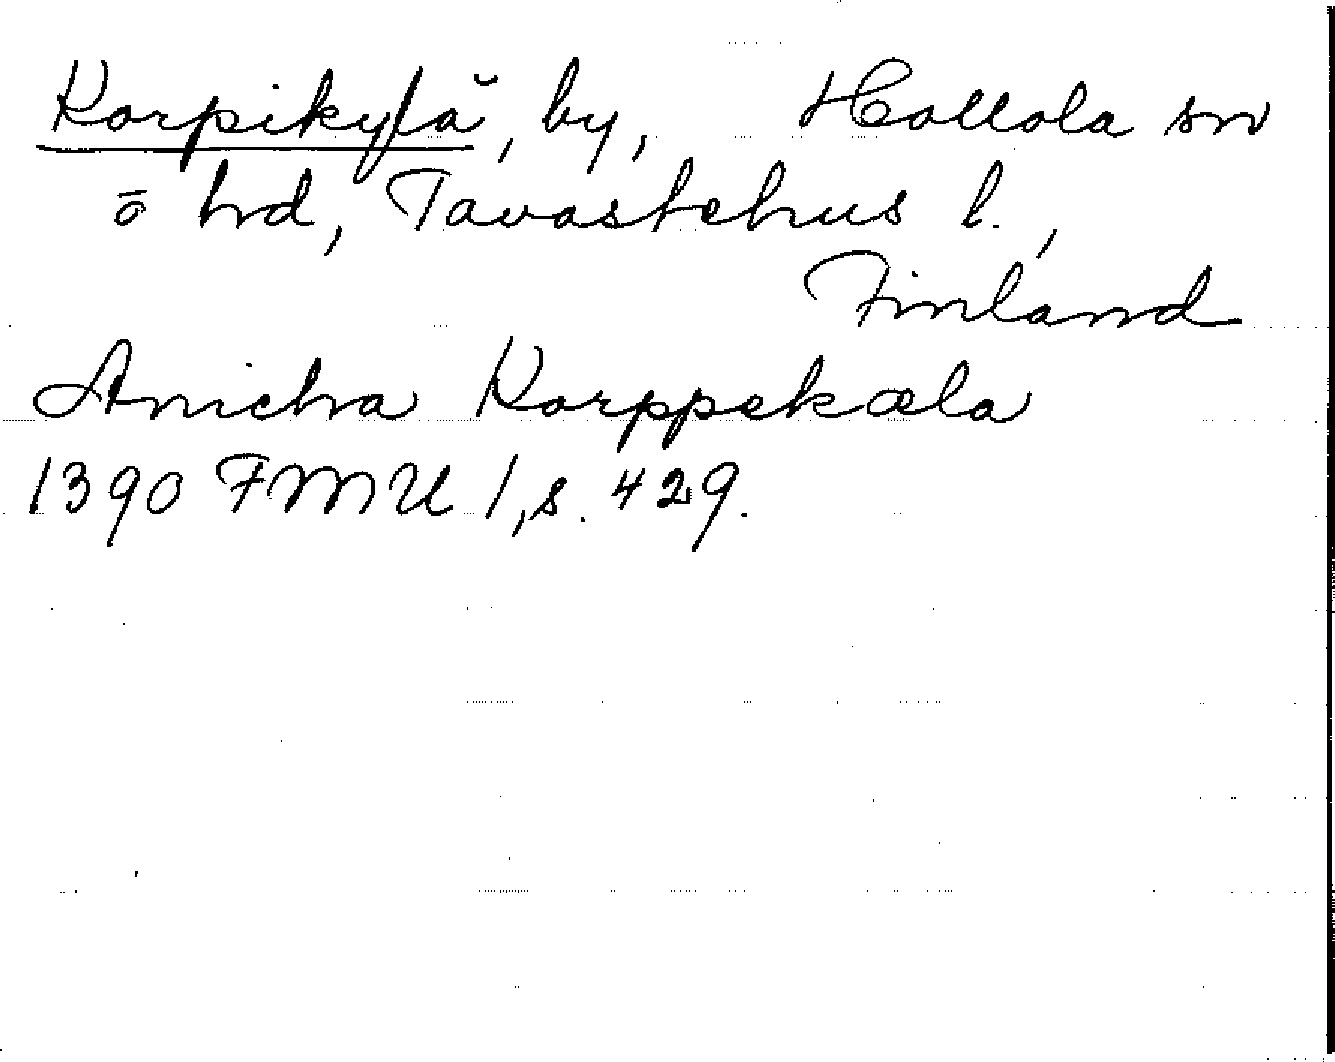 Korpikylä, by, Hollola sn
ö hd, Tavastehus l.,
Finland
Anicha Korppekæla
1390 FMU 1, s. 429.